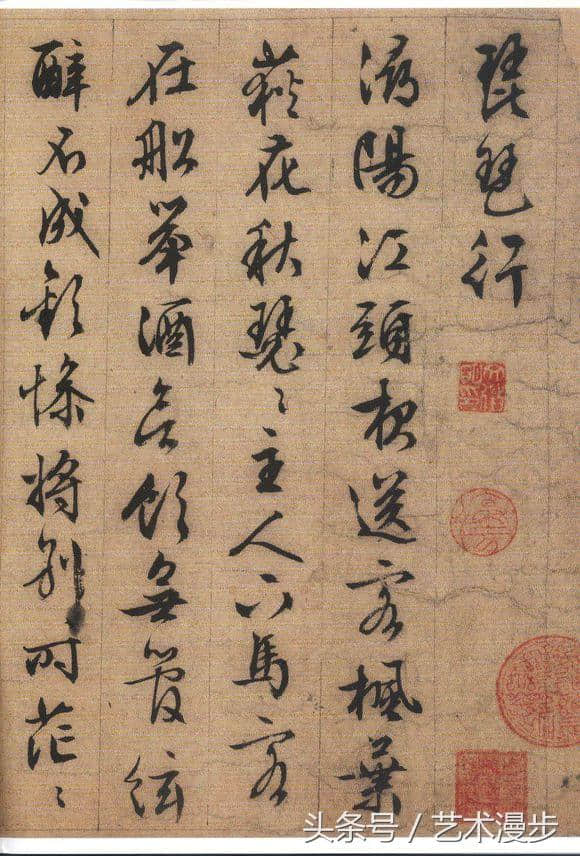 琵琶行
潯陽江頭夜送客楓葉
荻花秋瑟々主人下馬客
在船舉酒欲飲無管絃
醉不成歡慘將別時茫々
头条号 / 艺术漫步